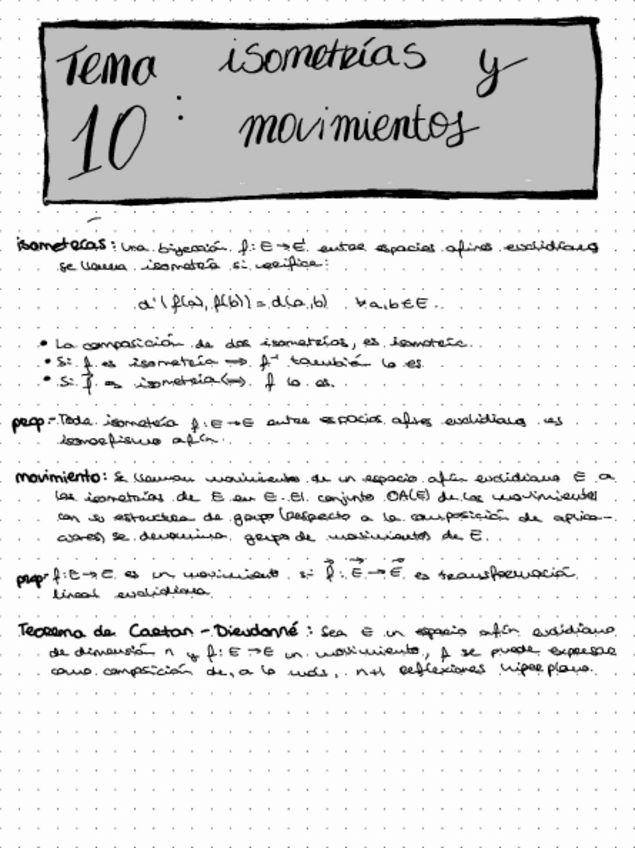 Tema 10: isometrías y
movimientos
isometrías: Una biyección f: E → E' entre espacios afines euclidianos
se llama isometría si verifica:
d'(f(a), f(b)) = d(a,b) ∀a,b∈E.
• La composición de dos isometrías, es isometría.
• Si f es isometría ⟹ f⁻¹ también lo es
• Si f⃗ es isometría ⟺ f lo es.
prop - Toda isometría f: E → E entre espacios afines euclidianos es
isomorfismo afín.
movimiento: Se llaman movimientos de un espacio afín euclidiano E a
las isometrías de E en E. El conjunto OA(E) de los movimientos
con su estructura de grupo (respecto a la composición de aplica-
ciones) se denomina grupo de movimientos de E.
prop - f: E → E es un movimiento si f⃗: E⃗ → E⃗ es transformación
lineal euclidiana
Teorema de Cartan - Dieudonné: Sea E un espacio afín euclidiano
de dimensión n y f: E → E un movimiento, f se puede expresar
como composición de, a lo más, n+1 reflexiones hiperplano.